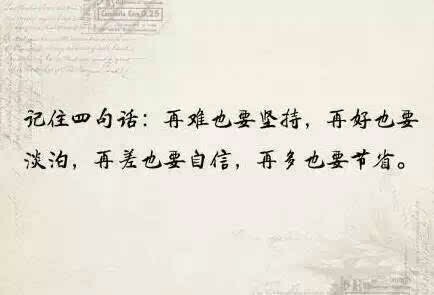 记住四句话：再难也要坚持，再好也要
淡泊，再差也要自信，再多也要节省。